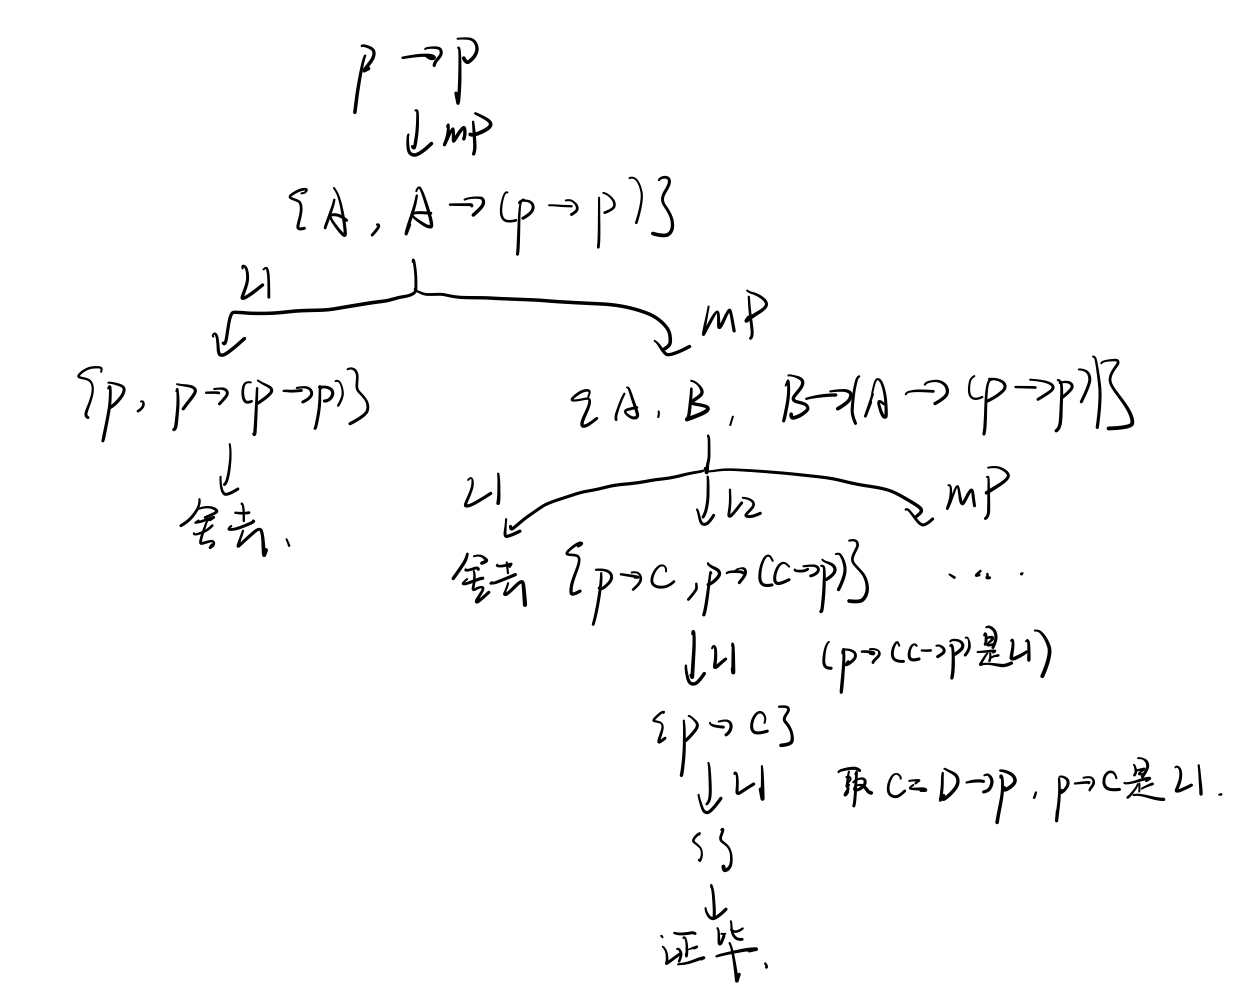 p → p
↓ mP
{A, A → (p → p)}
L1
mP
{p, p → (p → p)}
{A, B, B → (A → (p → p))}
舍去.
L1
L2
mP
舍去
{p → C, p → (C → p)}
....
↓ L1
(p → (C → p) 是 L1)
{p → C}
↓ L1
取 C = D → p, p → C 是 L1.
{}
证毕.